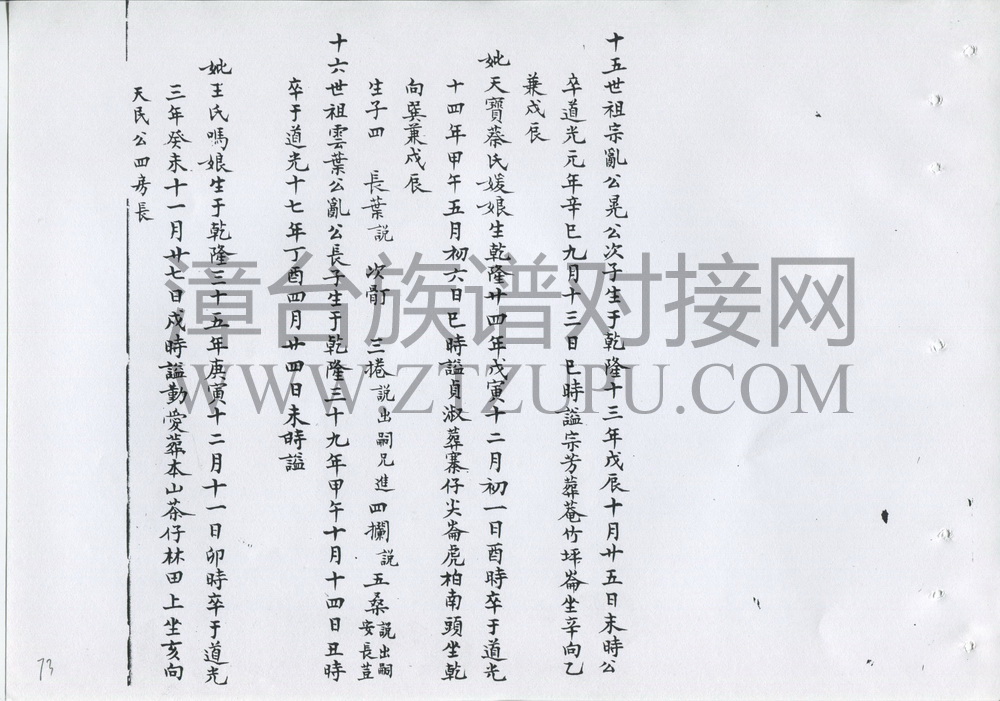 十五世祖宗亂公晃公次子生于乾隆十三年戊辰十月廿五日未時公
卒道光元年辛巳九月十三日巳時謚宗芳葬菴竹坪崙坐辛向乙
兼戍辰
妣天寶蔡氏媛娘生乾隆廿四年戊寅十二月初一日酉時卒于道光
十四年甲午五月初六日巳時謚貞淑葬寨仔尖崙虎柏南頭坐乾
向巽兼戍辰
生子四 長葉説 次骬 三捲説出嗣兄進 四攔説 五桑説出嗣安長荳
十六世祖雲葉公亂公長子生于乾隆三十九年甲午十月十四日丑時
卒于道光十七年丁酉四月廿四日未時謚
妣王氏嗎娘生于乾隆三十五年庚寅十二月十一日卯時卒于道光
三年癸未十一月廿七日戍時謚勤愛葬本山茶仔林田上坐亥向
天民公四房長
73
漳台族谱对接网
WWW.ZTZUPU.COM